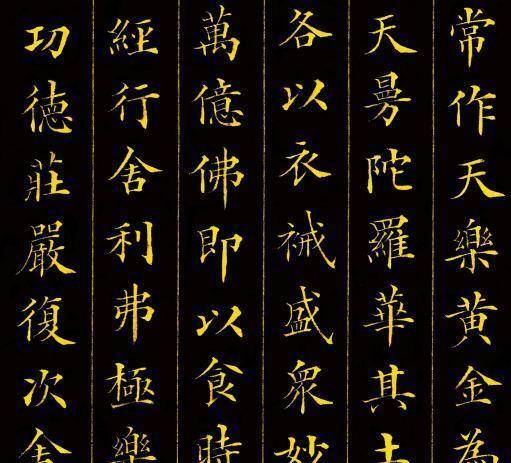 常作天樂黃金為
天曼陀羅華其土
各以衣祴盛眾妙
萬億佛即以食時
經行舍利弗極樂
功德莊嚴復次舍